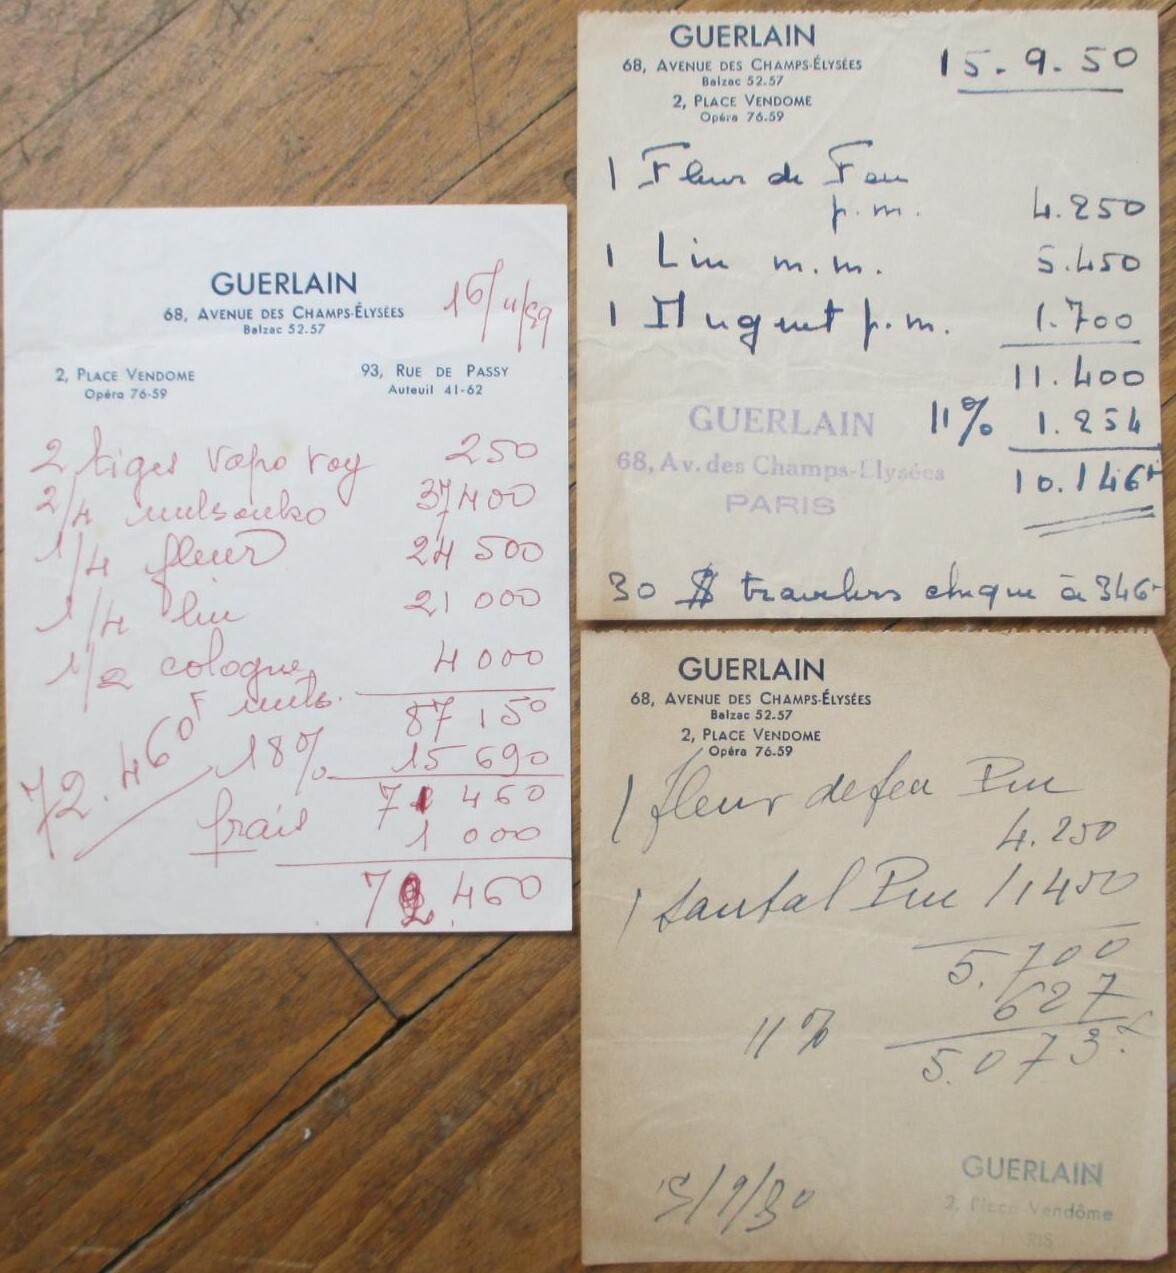 GUERLAIN
68, AVENUE DES CHAMPS-ÉLYSÉES
Balzac 52.57
16/11/59
2, PLACE VENDOME
Opéra 76-59
93, RUE DE PASSY
Auteuil 41-62
2 tiges vapo roy 250
2/4 mitsouko 37400
1/4 fleur 24 500
1/4 liu 21 000
1/2 cologne 4 000
F mits.
87 150
18% 15 690
72.460F
71 460
frais 1 000
72.460
GUERLAIN
68, AVENUE DES CHAMPS-ÉLYSÉES
Balzac 52.57
2, PLACE VENDOME
Opéra 76.59
15.9.50
1 Fleur de Feu
p.m. 4.250
1 Liu m.m. 5.450
1 Muguet p.m. 1.700
11.400
11% 1.254
10.146
GUERLAIN
68, Av. des Champs-Elysées
PARIS
30 $ travelers cheque à 346
GUERLAIN
68, AVENUE DES CHAMPS-ÉLYSÉES
Balzac 52.57
2, PLACE VENDOME
Opéra 76.59
1 fleur de feu Pm
4.250
1 Santal Pm 1450
5.700
627
11%
5.073
GUERLAIN
2, Place Vendôme